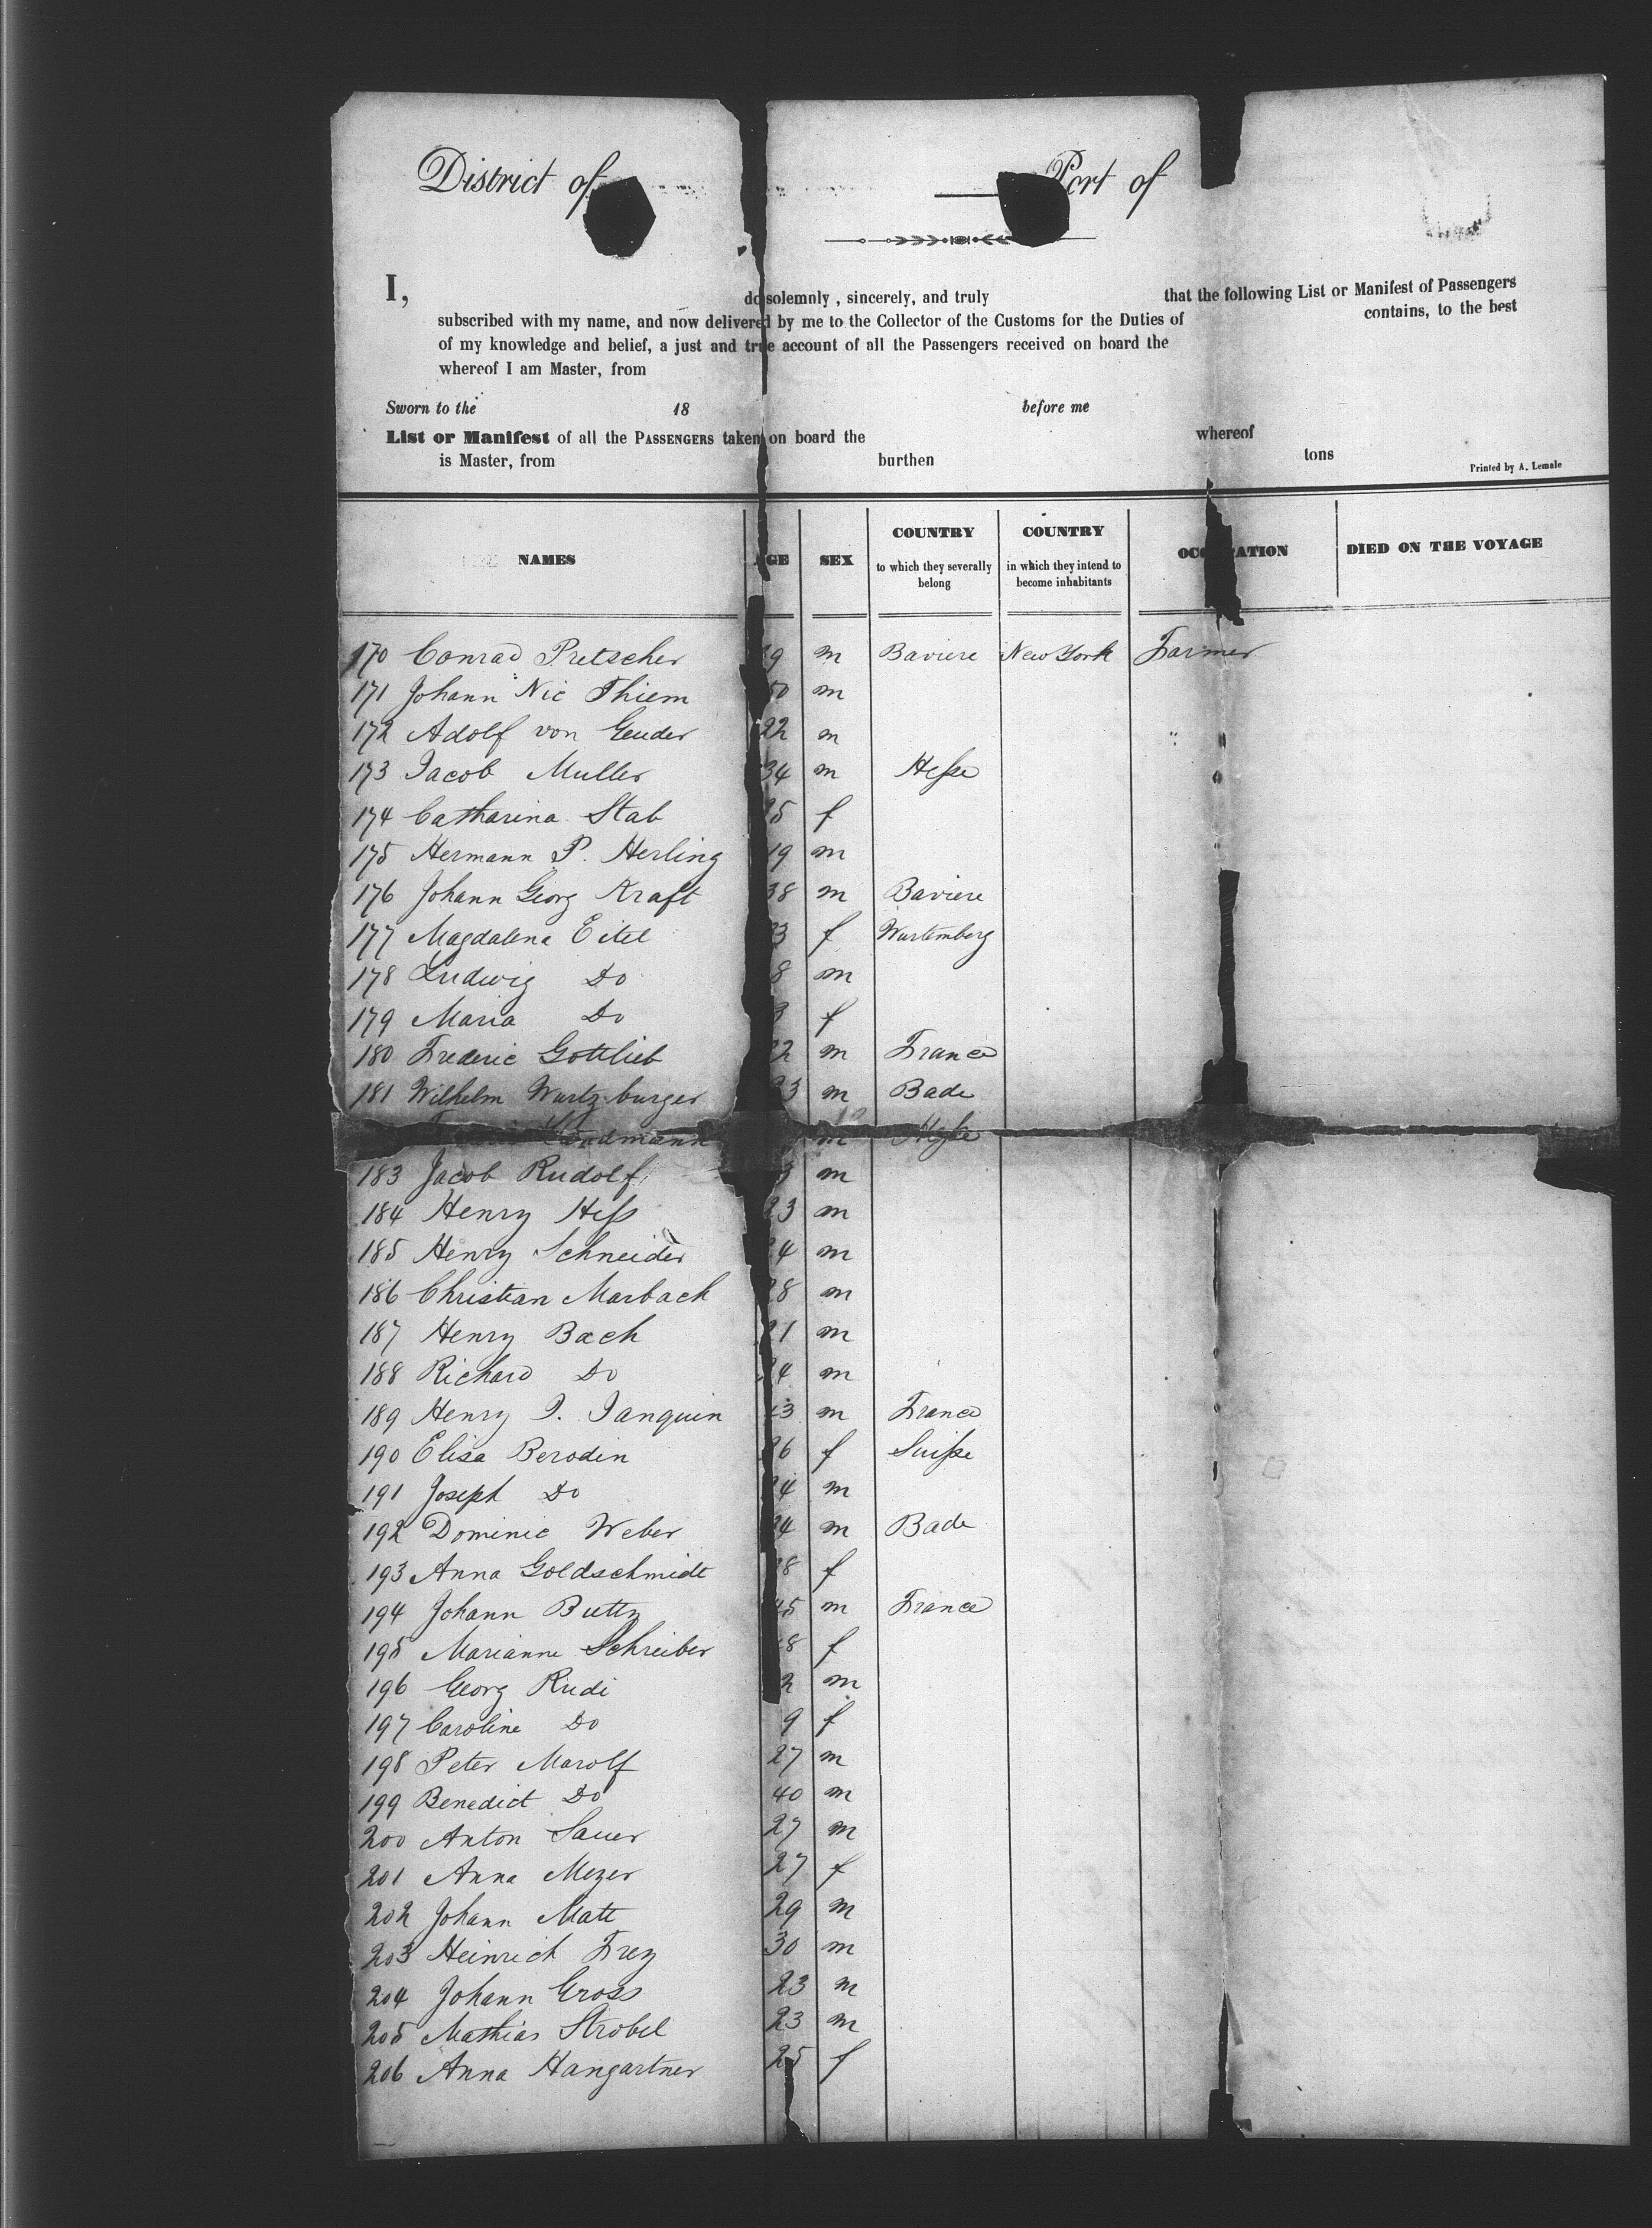 District of Port of
I, do solemnly , sincerely, and truly that the following List or Manifest of Passengers
subscribed with my name, and now delivered by me to the Collector of the Customs for the Duties of contains, to the best
of my knowledge and belief, a just and true account of all the Passengers received on board the
whereof I am Master, from
Sworn to the 18 before me
List or Manifest of all the PASSENGERS taken on board the whereof
is Master, from burthen tons
Printed by A. Lemale
NAMES AGE SEX COUNTRY to which they severally belong COUNTRY in which they intend to become inhabitants OCCUPATION DIED ON THE VOYAGE
170 Conrad Pretscher 9 m Baviere New York Farmer
171 Johann Nic Thiem 50 m
172 Adolf von Geuder 22 m
173 Jacob Muller 34 m Hesse
174 Catharina Stab 5 f
175 Hermann P. Herling 19 m
176 Johann Georg Kraft 38 m Baviere
177 Magdalena Eitel 3 f Wurtemberg
178 Ludwig Do 8 m
179 Maria Do f
180 Frederic Gottlieb 22 m France
181 Wilhelm Wurtzburger 3 m Bade
m Hesse
183 Jacob Rudolf m
184 Henry Hess 23 m
185 Henry Schneider 4 m
186 Christian Marbach 28 m
187 Henry Bach 21 m
188 Richard Do 24 m
189 Henry J. Janquin 3 m France
190 Elisa Berodin 26 f Suisse
191 Joseph Do 4 m
192 Dominic Weber 24 m Bade
193 Anna Goldschmidt 8 f
194 Johann Buttz 45 m France
195 Marianne Schreiber 8 f
196 Georg Rudi 2 m
197 Caroline Do 9 f
198 Peter Marolf 27 m
199 Benedict Do 40 m
200 Anton Sauer 27 m
201 Anna Mezer 27 f
202 Johann Matt 29 m
203 Heinrich Frey 30 m
204 Johann Gross 23 m
205 Mathias Strobel 23 m
206 Anna Hangartner 25 f